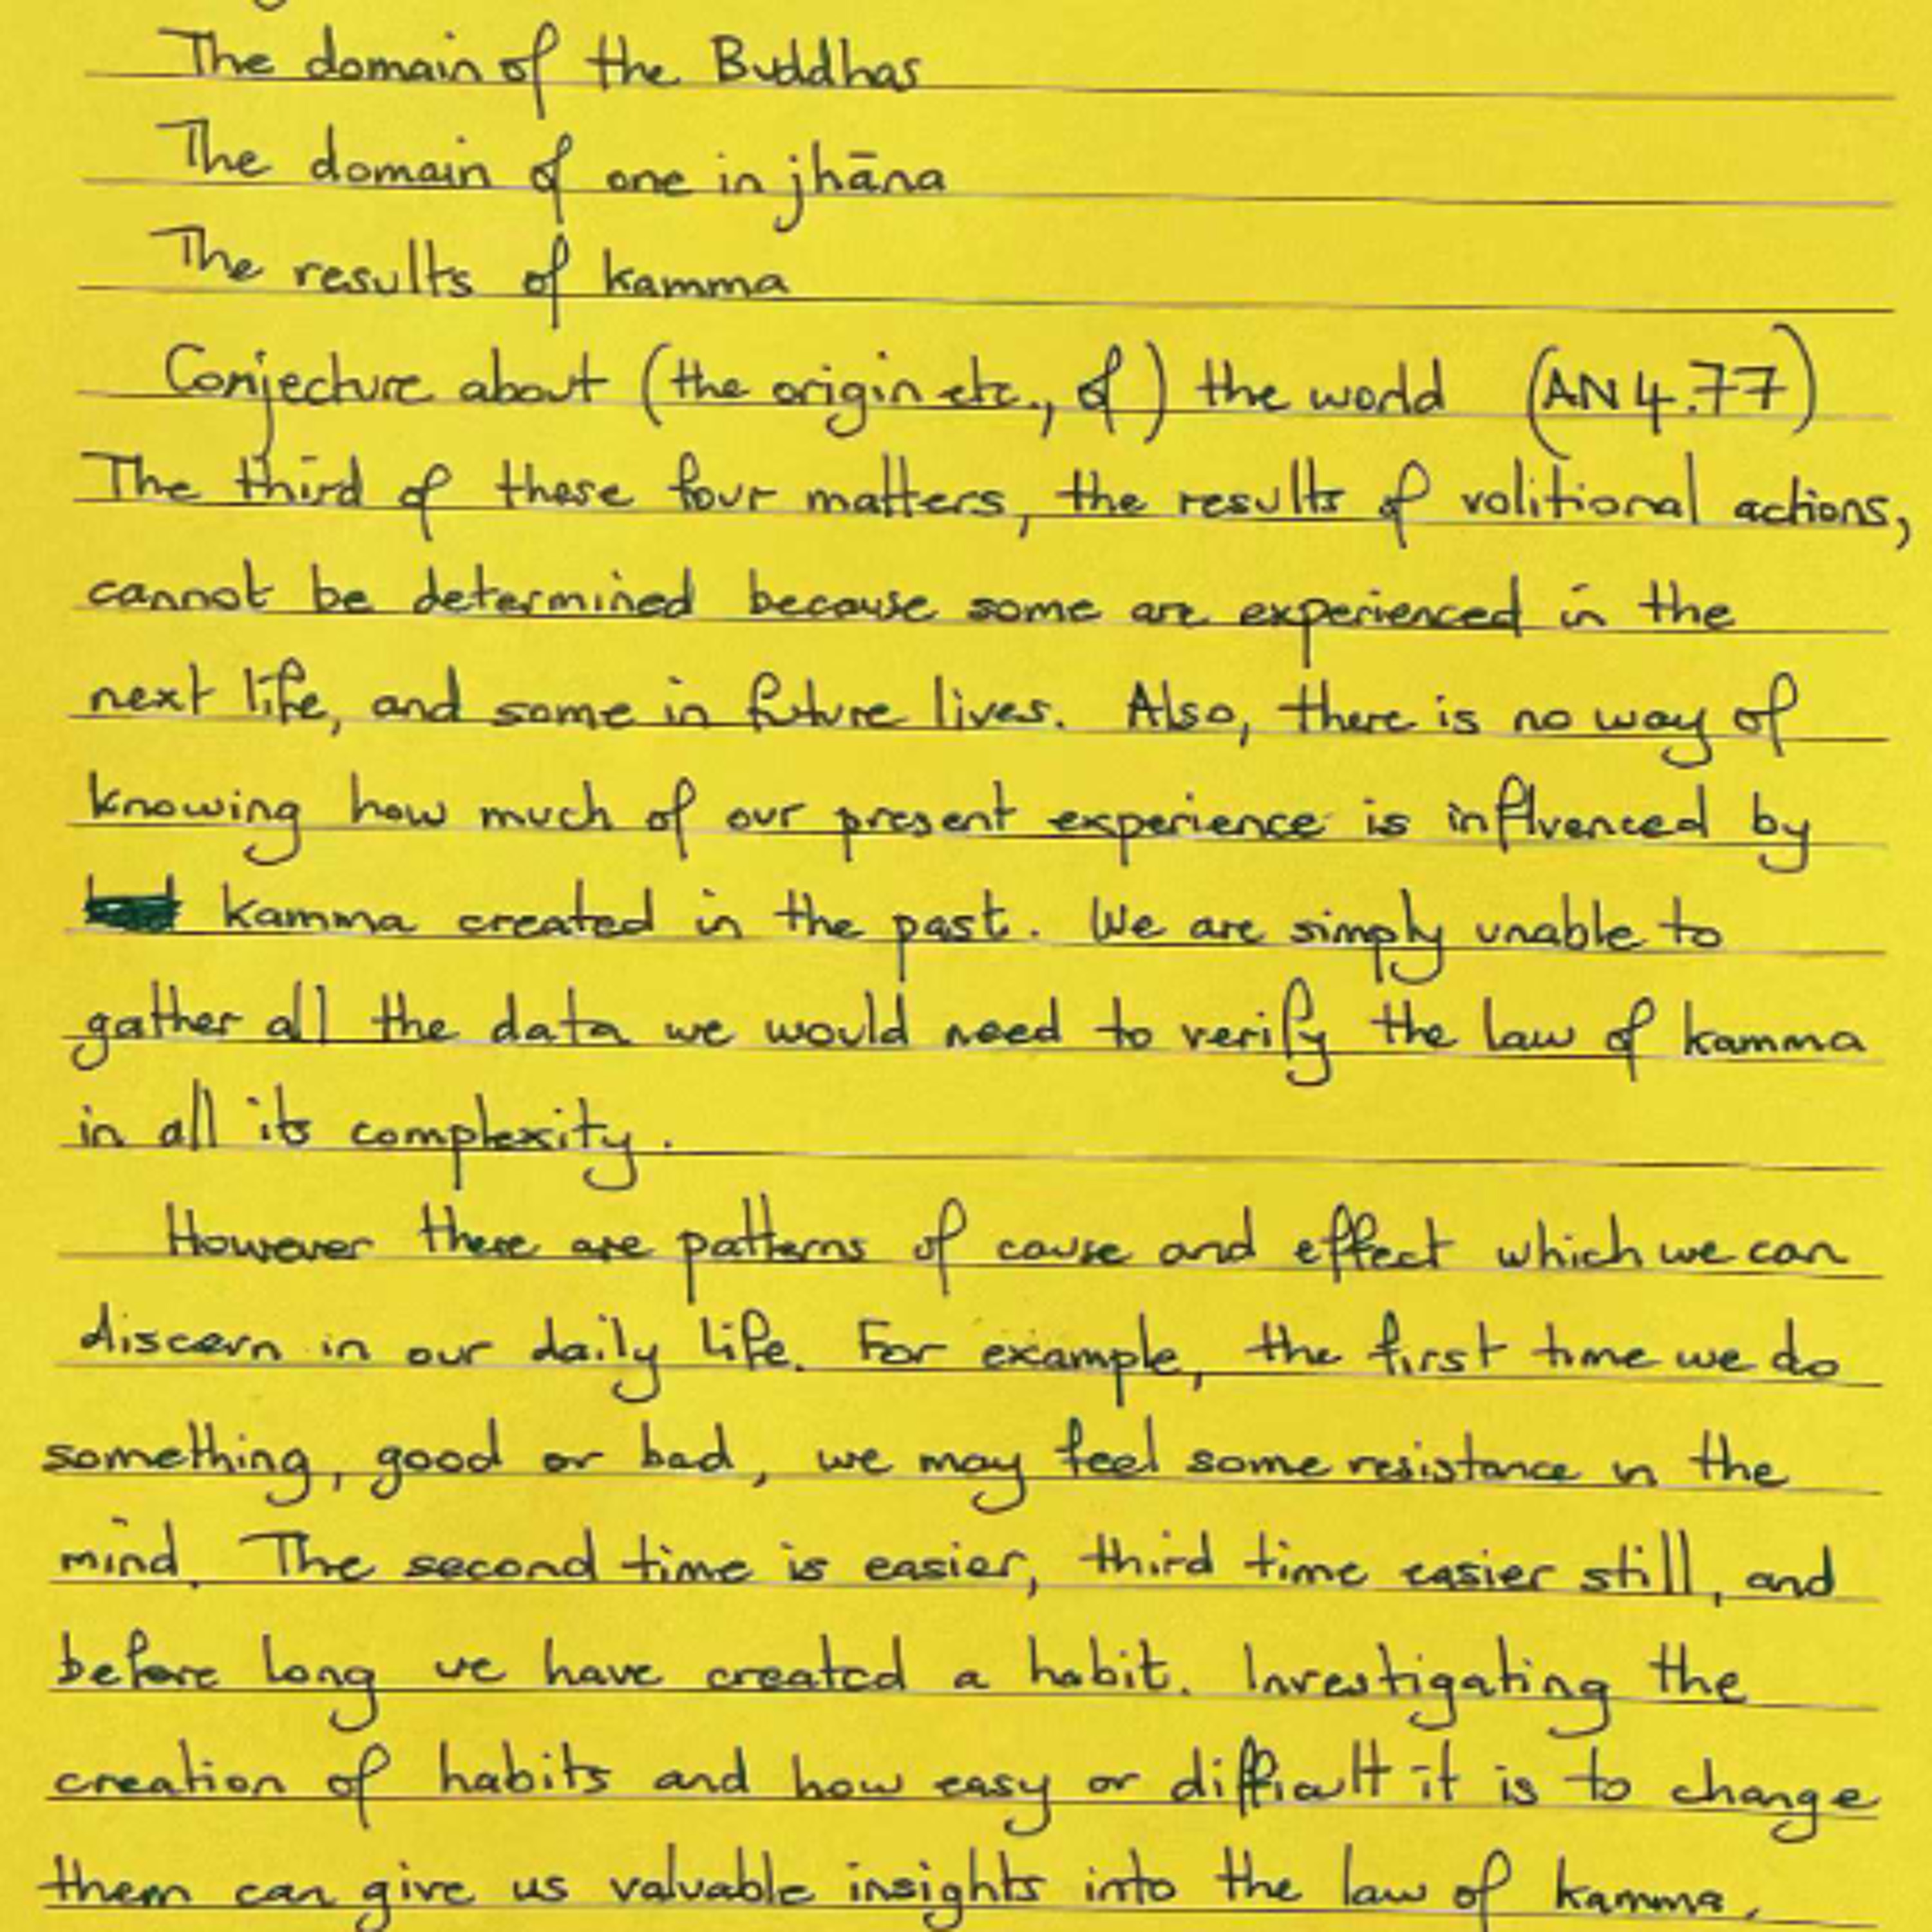 The domain of the Buddhas
The domain of one in jhāna
The results of kamma
Conjecture about (the origin etc., of) the world (AN 4.77)
The third of these four matters, the results of volitional actions,
cannot be determined because some are experienced in the
next life, and some in future lives. Also, there is no way of
knowing how much of our present experience is influenced by
kamma created in the past. We are simply unable to
gather all the data we would need to verify the law of kamma
in all its complexity.
However there are patterns of cause and effect which we can
discern in our daily life. For example, the first time we do
something, good or bad, we may feel some resistance in the
mind. The second time is easier, third time easier still, and
before long we have created a habit. Investigating the
creation of habits and how easy or difficult it is to change
them can give us valuable insights into the law of kamma.